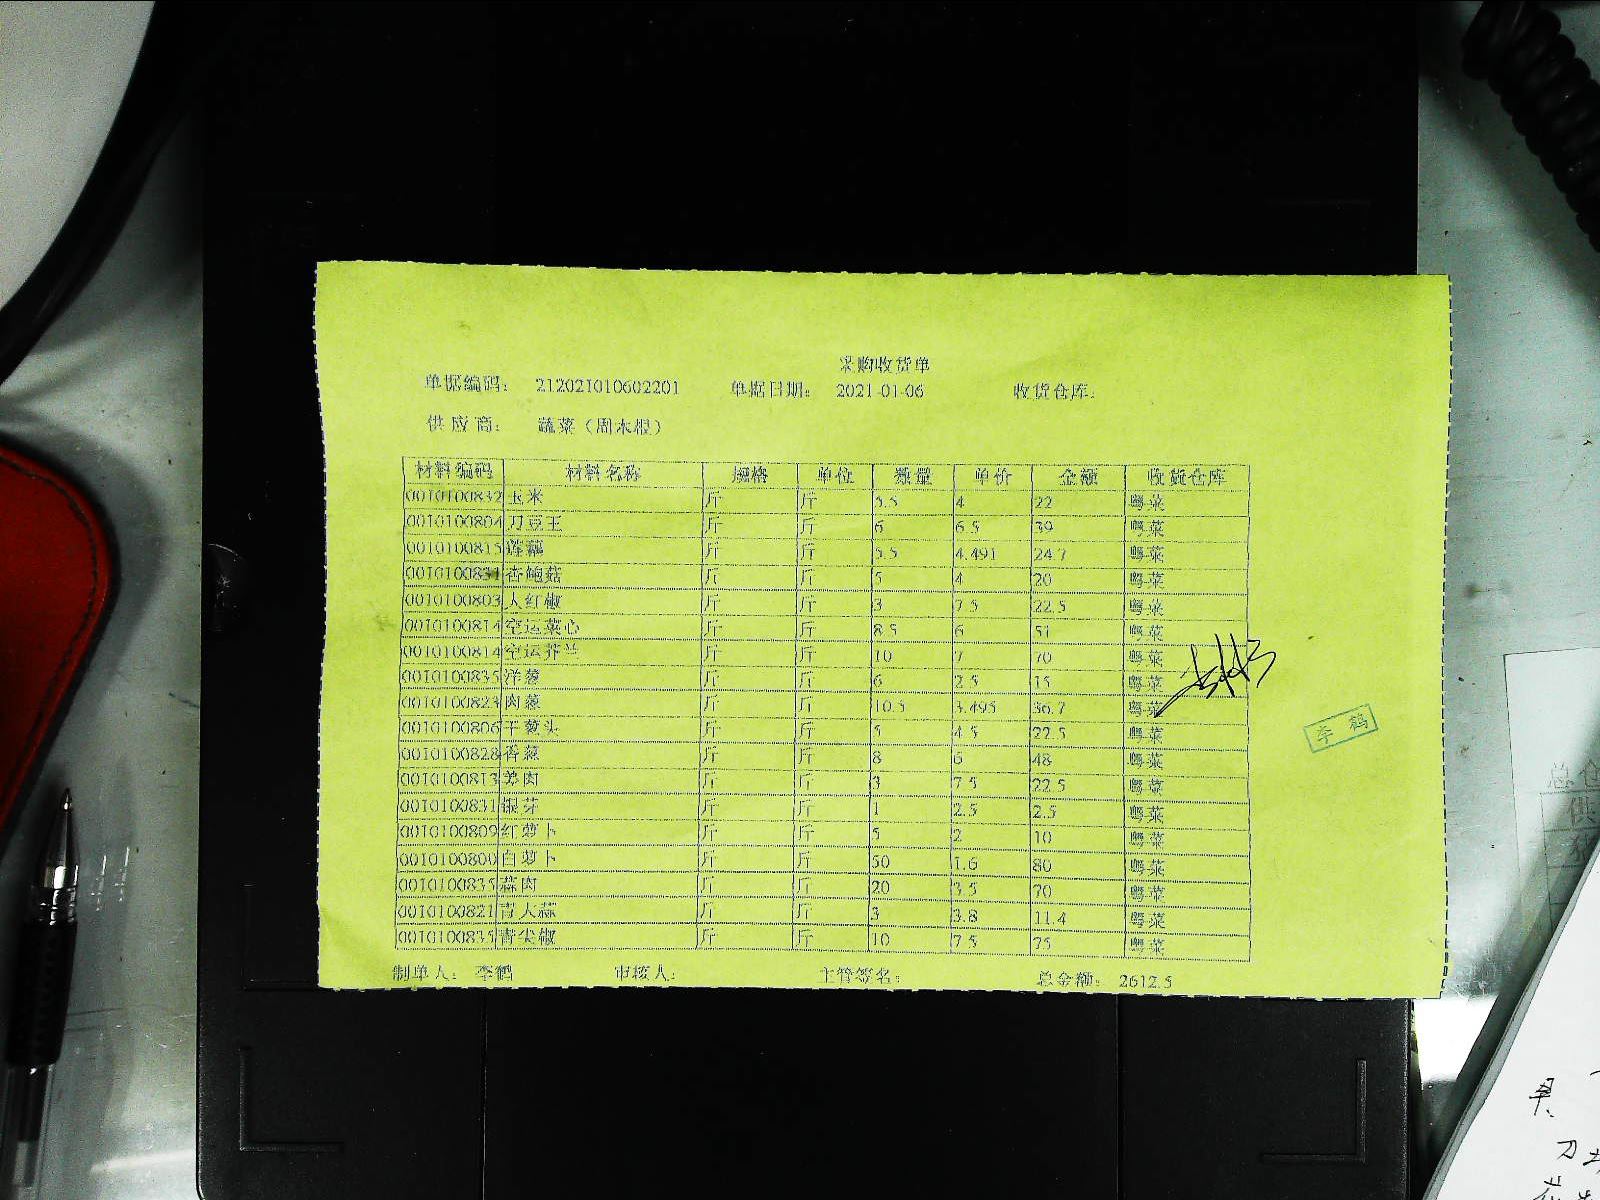 采购收货单
单据编码： 212021010602201 单据日期： 2021-01-06 收货仓库：
供应商： 蔬菜（周木根）
材料编码 材料名称 规格 单位 数量 单价 金额 收货仓库
0010100832 玉米 斤 斤 5.5 4 22 粤菜
0010100804 刀豆王 斤 斤 6 6.5 39 粤菜
0010100815 莲藕 斤 斤 5.5 4.491 24.7 粤菜
0010100831 杏鲍菇 斤 斤 5 4 20 粤菜
0010100803 大红椒 斤 斤 3 7.5 22.5 粤菜
0010100814 空运菜心 斤 斤 8.5 6 51 粤菜
0010100814 空运芥兰 斤 斤 10 7 70 粤菜
0010100835 洋葱 斤 斤 6 2.5 15 粤菜
0010100823 肉葱 斤 斤 10.5 3.495 36.7 粤菜
0010100806 干葱头 斤 斤 5 4.5 22.5 粤菜
0010100828 香葱 斤 斤 8 6 48 粤菜
0010100813 姜肉 斤 斤 3 7.5 22.5 粤菜
0010100831 银芽 斤 斤 1 2.5 2.5 粤菜
0010100809 红萝卜 斤 斤 5 2 10 粤菜
0010100800 白萝卜 斤 斤 50 1.6 80 粤菜
0010100835 蒜肉 斤 斤 20 3.5 70 粤菜
0010100821 青大蒜 斤 斤 3 3.8 11.4 粤菜
0010100835 青尖椒 斤 斤 10 7.5 75 粤菜
制单人： 李鹤 审核人： 主管签名： 总金额： 2612.5
李鹤